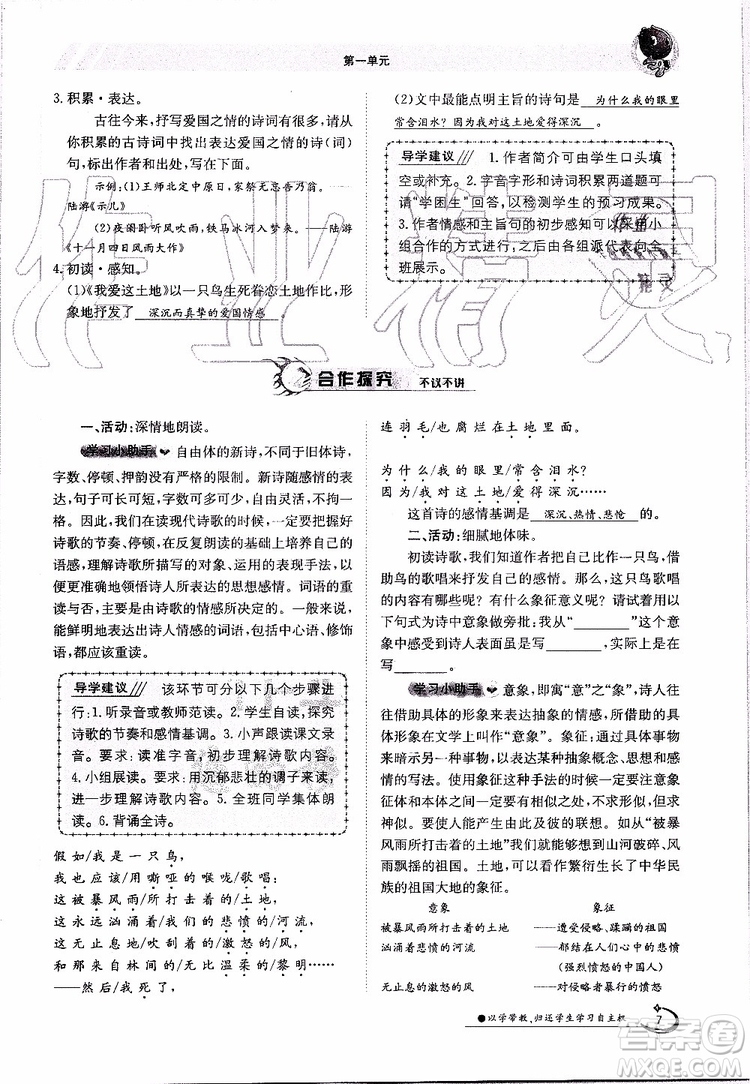 第一单元
3. 积累·表达。
古往今来，抒写爱国之情的诗词有很多，请从
你积累的古诗词中找出表达爱国之情的诗(词)
句，标出作者和出处，写在下面。
示例：(1)王师北定中原日，家祭无忘告乃翁。
陆游《示儿》
(2)夜阑卧听风吹雨，铁马冰河入梦来。——陆游
《十一月四日风雨大作》
4. 初读·感知。
(1)《我爱这土地》以一只鸟生死眷恋土地作比，形
象地抒发了 深沉而真挚的爱国情感 。
(2)文中最能点明主旨的诗句是 为什么我的眼里
常含泪水？因为我对这土地爱得深沉 。
导学建议 1. 作者简介可由学生口头填
空或补充。2. 字音字形和诗词积累两道题可
请“学困生”回答，以检测学生的预习成果。
3. 作者情感和主旨句的初步感知可以采用小
组合作的方式进行，之后由各组派代表向全
班展示。
合作探究 不议不讲
一、活动：深情地朗读。
学习小助手 自由体的新诗，不同于旧体诗，
字数、停顿、押韵没有严格的限制。新诗随感情的表
达，句子可长可短，字数可多可少，自由灵活，不拘一
格。因此，我们在读现代诗歌的时候，一定要把握好
诗歌的节奏、停顿，在反复朗读的基础上培养自己的
语感，理解诗歌所表现的对象、运用的表现手法，以
便更准确地领悟诗人所表达的思想感情。词语的重
读与否，主要是由诗歌的情感所决定的。一般来说，
能鲜明地表达出诗人情感的词语，包括中心语、修饰
语，都应该重读。
导学建议 该环节可分以下几个步骤进
行：1. 听录音或教师范读。2. 学生自读，探究
诗歌的节奏和感情基调。3. 小声跟读课文录
音。要求：读准字音，初步理解诗歌内容。
4. 小组展读。要求：用沉郁悲壮的调子来读，
进一步理解诗歌内容。5. 全班同学集体朗
读。6. 背诵全诗。
假如/我是一只鸟，
我也应该/用嘶哑的喉咙/歌唱：
这被暴风雨/所打击着的/土地，
这永远汹涌着/我们的悲愤的/河流，
这无止息地/吹刮着的/激怒的/风，
和那来自林间的/无比温柔的/黎明……
——然后/我死了，
连羽毛/也腐烂在土地里面。
为什么/我的眼里/常含泪水？
因为/我对这土地/爱得深沉……
这首诗的感情基调是 深沉、热情、悲怆 。
二、活动：细腻地体味。
初读诗歌，我们知道作者把自己比作一只鸟，借
助鸟的歌唱来抒发自己的感情。那么，这只鸟歌唱
的内容有哪些呢？有什么象征意义呢？请试着以
下句式为诗中意象做旁批：我从这首诗中读出了意
象________，它表面上是写________，实际上是在
写________。
学习小助手 意象，即寓“意”之“象”，诗人往
往借助具体的形象来表达抽象的情感，这些具体的
形象在文学上叫作“意象”。象征：文学创作中借用
某一种事物，来表达某种抽象概念、思想和
情感的写法。运用象征这种手法时，要求象
征体和本体之间有相似之处，但不求形似，但求
神似。要能使人产生由此及彼的联想。如“被暴
风雨所打击着的土地”象征当时山河破碎、风
雨飘摇的祖国。土地，可以看作繁衍生长了中华民
族的祖国大地的象征。
意象 象征
被暴风雨所打击着的土地 ——遭受侵略、蹂躏的祖国
汹涌着悲愤的河流 ——郁结在人们心中的悲愤
(强烈愤怒的中国人民)
无止息的激怒的风 ——对侵略暴行的愤怒
●以学带教、归还学生学习自主权 7
作业精灵
答案圈
MXQE.COM